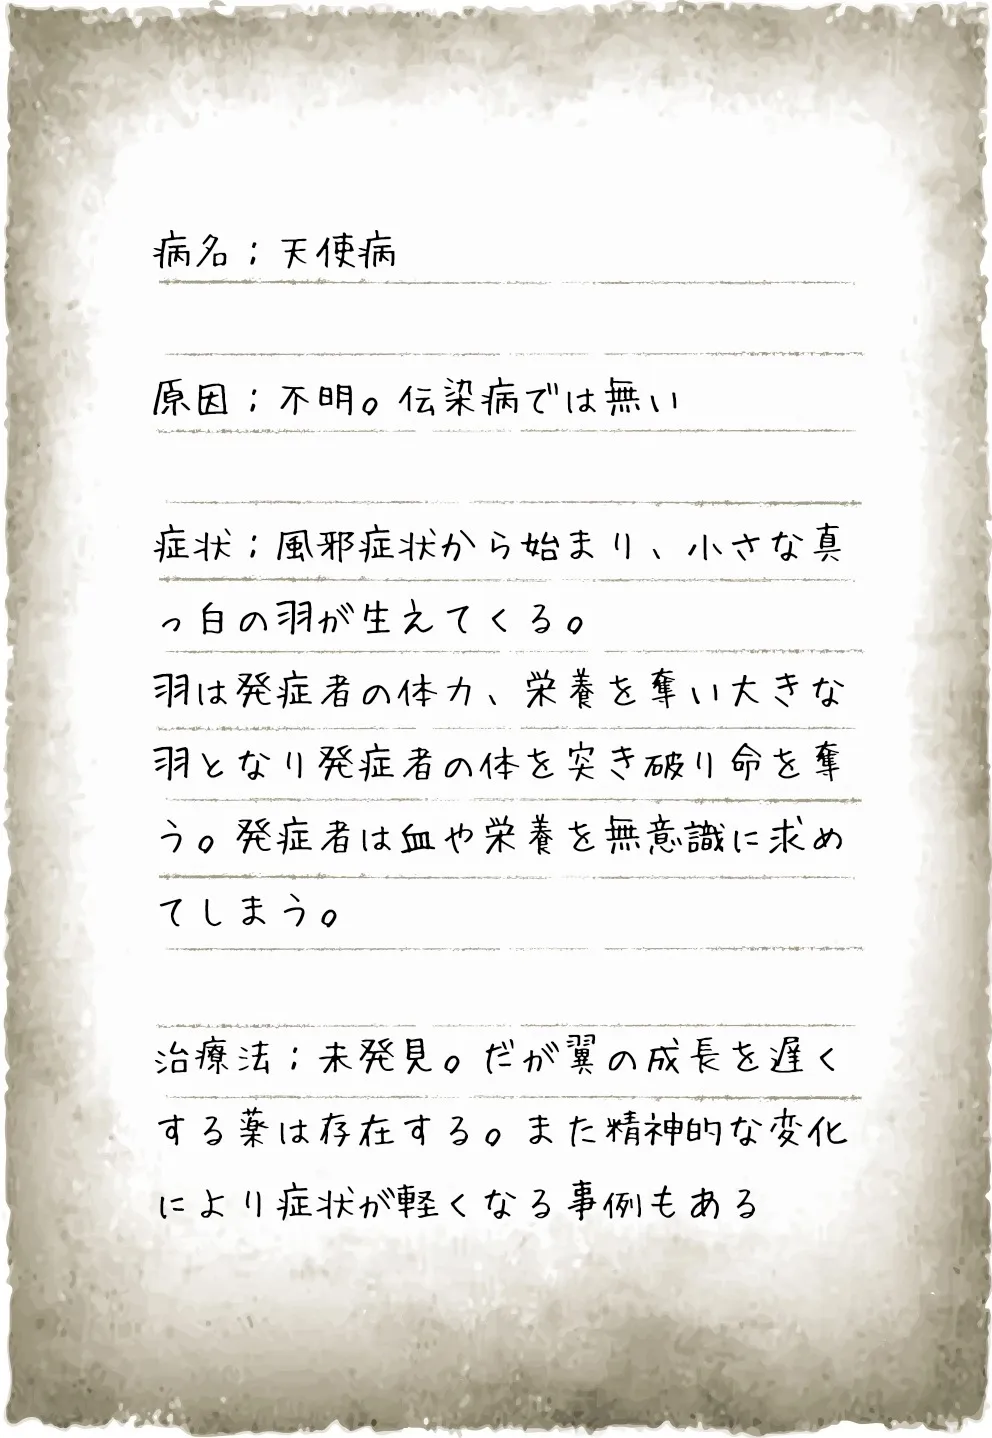 病名；天使病
原因；不明。伝染病では無い
症状；風邪症状から始まり、小さな真
っ白の羽が生えてくる。
羽は発症者の体力、栄養を奪い大きな
羽となり発症者の体を突き破り命を奪
う。発症者は血や栄養を無意識に求め
てしまう。
治療法；未発見。だが翼の成長を遅く
する薬は存在する。また精神的な変化
により症状が軽くなる事例もある